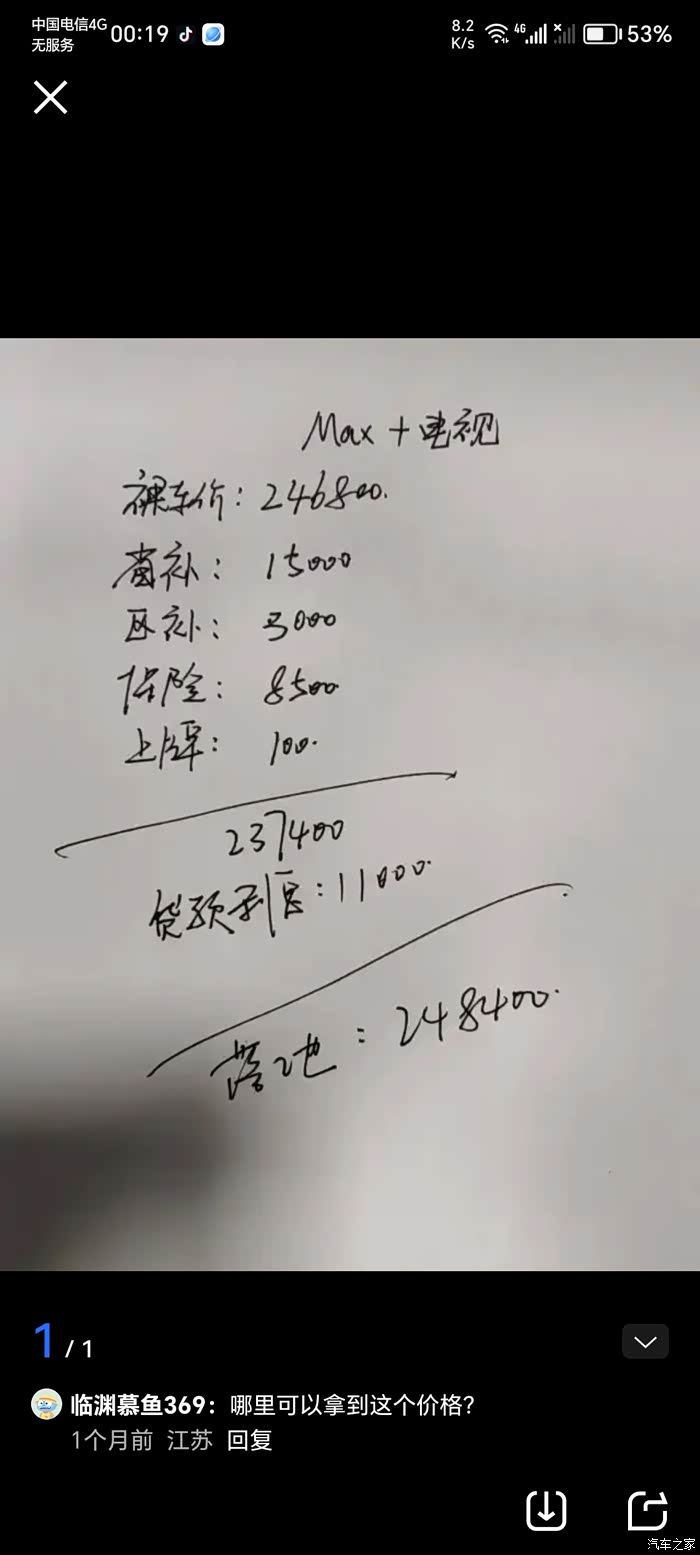 中国电信4G 00:19 8.2 K/s 4G 53%
无服务
Max + 电视
裸车价: 246800.
省补: 15000
区补: 3000
保险: 8500
上牌: 100.
237400
贷款利息: 11000.
落地: 248400.
1 / 1
临渊慕鱼369: 哪里可以拿到这个价格?
1个月前 江苏 回复
汽车之家